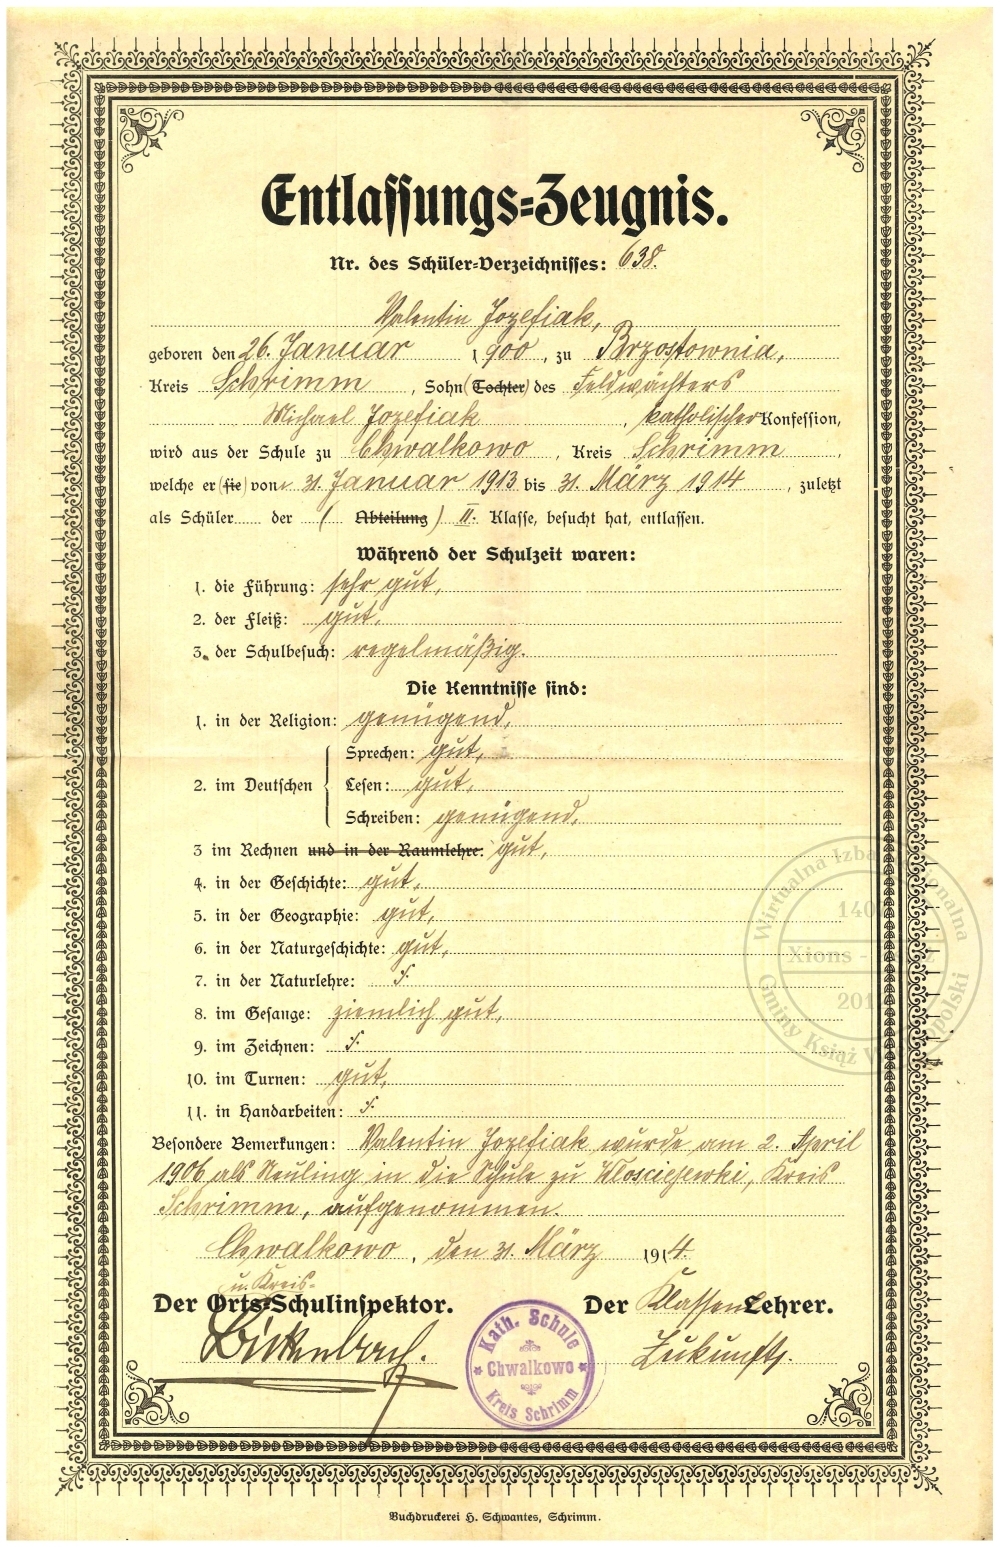 Entlassungs-Zeugnis.
Nr. des Schüler-Verzeichnisses: 638.
Valentin Jozefiak,
geboren den 26. Januar 1900, zu Brzostownia,
Kreis Schrimm, Sohn (Tochter) des Feldwächters
Michael Jozefiak, katholischer Konfession,
wird aus der Schule zu Chwalkowo, Kreis Schrimm,
welche er (sie) vom 31. Januar 1913 bis 31. März 1914, zuletzt
als Schüler der ( Abteilung ) II. Klasse, besucht hat, entlassen.
Während der Schulzeit waren:
1. die Führung: sehr gut,
2. der Fleiß: gut,
3. der Schulbesuch: regelmäßig.
Die Kenntnisse sind:
1. in der Religion: genügend,
2. im Deutschen
Sprechen: gut,
Lesen: gut,
Schreiben: genügend,
3 im Rechnen und in der Raumlehre: gut,
4. in der Geschichte: gut,
5. in der Geographie: gut,
6. in der Naturgeschichte: gut,
7. in der Naturlehre:
8. im Gesange: ziemlich gut,
9. im Zeichnen:
10. im Turnen: gut,
11. in Handarbeiten:
Besondere Bemerkungen: Valentin Jozefiak wurde am 2. April
1906 als Neuling in die Schule zu Wlosciejewki, Kreis
Schrimm, aufgenommen.
Chwalkowo, den 31. März 1914.
u. Kreis-
Der Orts-Schulinspektor.
Der Klassen Lehrer.
Birkenbach.
Zukunft.
Kath. Schule
Chwalkowo
Kreis Schrimm
Wirtualna Izba Regionalna
Xions - Książ
Gminy Książ Wielkopolski
Buchdruckerei H. Schwantes, Schrimm.